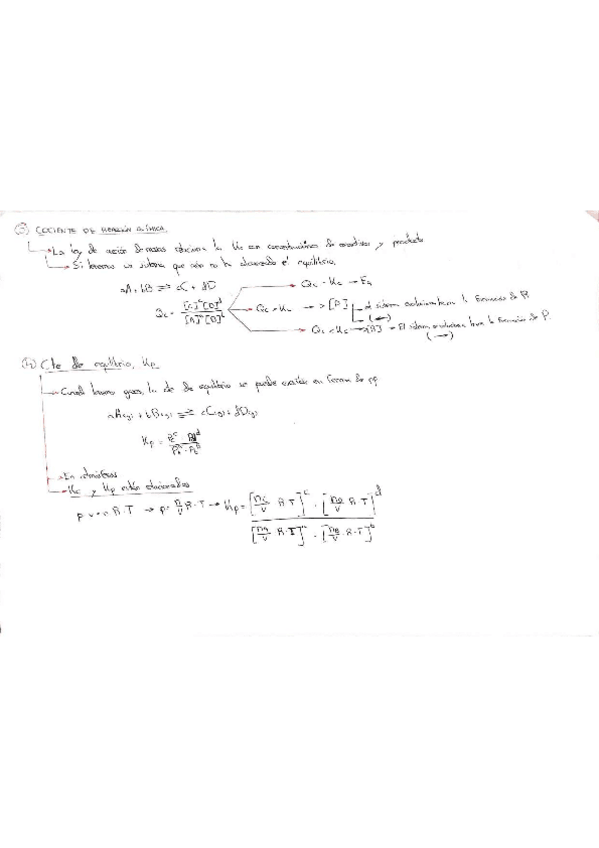 ③ COCIENTE DE REACCIÓN QUÍMICA.
La ley de acción de masas relaciona la Kc con concentraciones de reactivos y producto
Si tenemos un sistema que aún no ha alcanzado el equilibrio,
aA + bB ⇌ cC + dD
Qc = [C]^c [D]^d / [A]^a [B]^b
Qc = Kc → Eq
Qc > Kc → > [P] El sistem evolucionará hacia la formación de R (←)
Qc < Kc → El sistem evolucionará hacia la formación de P. (→)
④ Cte de equilibrio, Kp
Cuando tenemos gases, la cte de equilibrio se puede escribir en forma de
aA(g) + bB(g) ⇌ cC(g) + dD(g)
Kp = Pc^c · PD^d / PA^a · PB^b
En atmósferas
Kc y Kp están relacionados
p · v = n R · T → p = n/V R · T → Kp = [nc/V R · T]^c · [nD/V R · T]^d / [nA/V R · T]^a · [nB/V R · T]^b